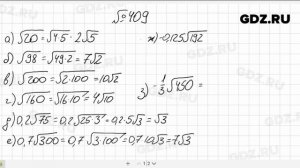 GDZ.RU
№409
а) √20 = √4·5 = 2√5
ж) -0,125√192
б) √98 = √49·2 = 7√2
в) √200 = √2·100 = 10√2
з) -1/3√450 =
г) √160 = √16·10 = 4√10
д) 0,2√75 = 0,2√25·3 = 0,2·5√3 = √3
е) 0,7√300 = 0,7√3·100 = 0,7·10√3 = 7√3
GDZ.RU